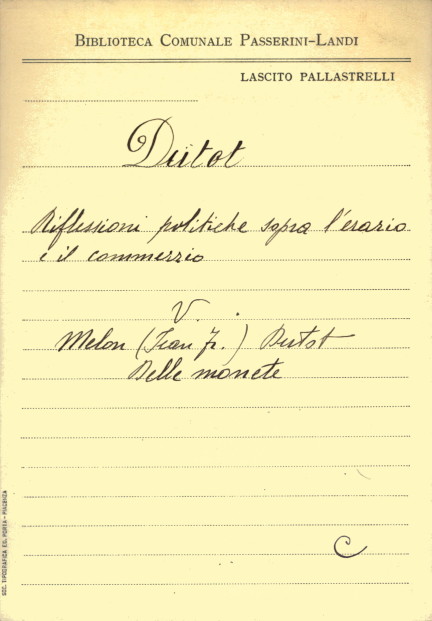 BIBLIOTECA COMUNALE PASSERINI-LANDI
LASCITO PALLASTRELLI
Dutot
Riflessioni politiche sopra l'erario
e il commerzio
V.
Melon (Jean Fr.) Dutot
Delle monete
C
SOC. TIPOGRAFICA ED. PORTA - PIACENZA